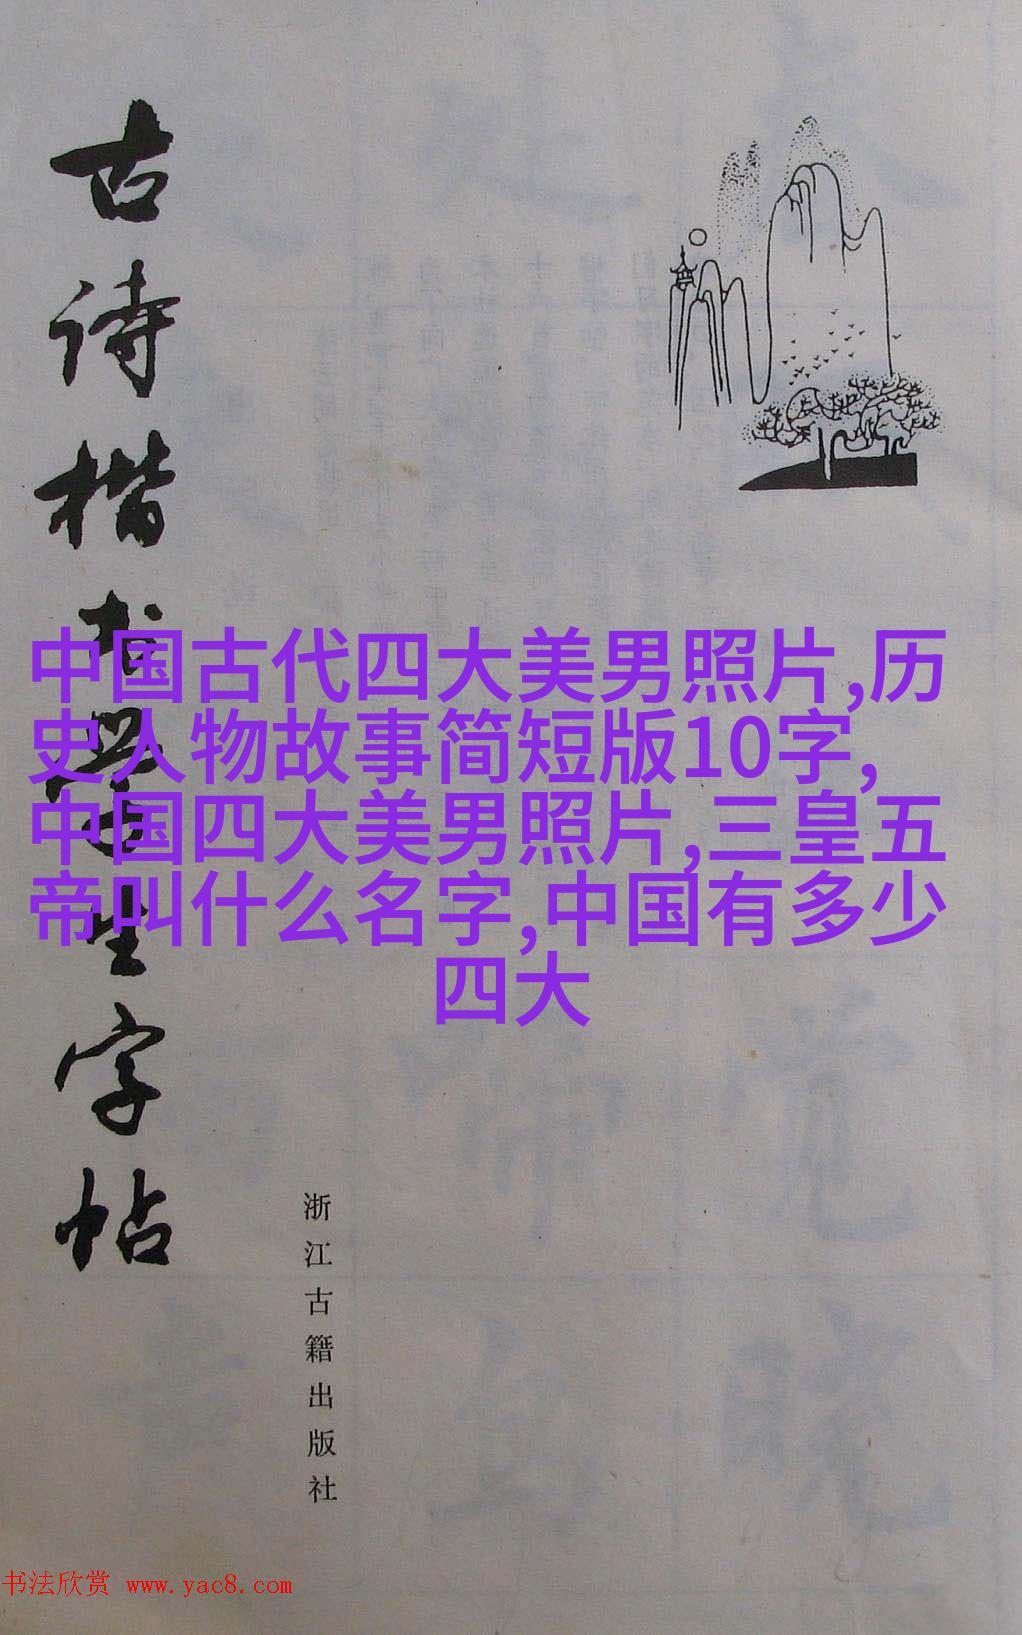 古诗楷书学生字帖
中国古代四大美男照片,历
史人物故事简短版10字,
中国四大美男照片,三皇五
帝叫什么名字,中国有多少
四大
浙江古籍出版社
书法欣赏 www.yac8.com